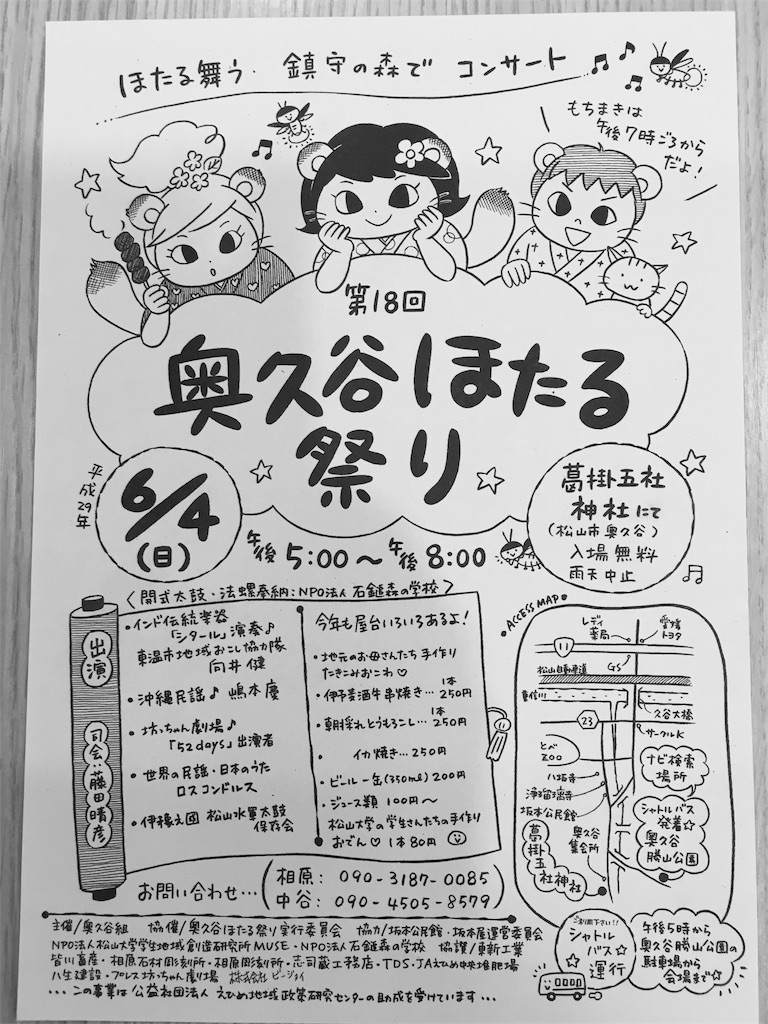 ほたる舞う 鎮守の森で コンサート
もちまきは
午後7時ごろから
だよ!
第18回
奥久谷ほたる
祭り
平成29年
6/4
(日)
午後5:00〜午後8:00
葛掛五社
神社にて
(松山市奥久谷)
入場無料
雨天中止
〈開式太鼓・法螺奉納:NPO法人石鎚森の学校〉
出演
司会:藤田晴彦
・インド伝統楽器
「シタール」演奏♪
東温市地域おこし協力隊
向井 健
・沖縄民謡♪ 嶋本慶
・坊っちゃん劇場♪
「52days」出演者
・世界の民謡・日本のうた
ロスコンドルス
・伊豫之國 松山水軍太鼓
保存会
今年も屋台いろいろあるよ!
・地元のお母さんたち手作り
たきこみおこわ♡
・伊予麦酒牛串焼き…1本250円
・朝採れとうもろこし…1本250円
イカ焼き…250円
・ビール一缶(350ml)200円
・ジュース類 100円〜
松山大学の学生さんたちの手作り
おでん♡ 1本80円
・ACCESS MAP・
レディ
薬局
愛媛
トヨタ
11
GS
松山自動車道
重信川
久谷大橋
23
サークルK
とべ
ZOO
ナビ検索
場所
八坂寺
浄瑠璃寺
坂本公民館
シャトルバス
発着☆
奥久谷
勝山公園
奥久谷
集会所
葛掛五社神社
お問い合わせ…
相原: 090-3187-0085
中谷: 090-4505-8579
主催/奥久谷組 協催/奥久谷ほたる祭り実行委員会 協力/坂本公民館・坂本屋運営委員会
NPO法人松山大学学生地域創造研究所MUSE・NPO法人石鎚森の学校 協讃/東新工業
皆川畜産・相原石材彫刻所・相原彫刻所・忘司蔵工務店・TDS・JAえひめ中央堆肥場
八生建設・プレス坊っちゃん劇場 株式会社ビージョイ
…この事業は公益社団法人 えひめ地域政策研究センターの助成を受けています…
ご利用下さい!!
シャトル
バス
運行
午後5時から
奥久谷勝山公園の
駐車場から
会場まで☆